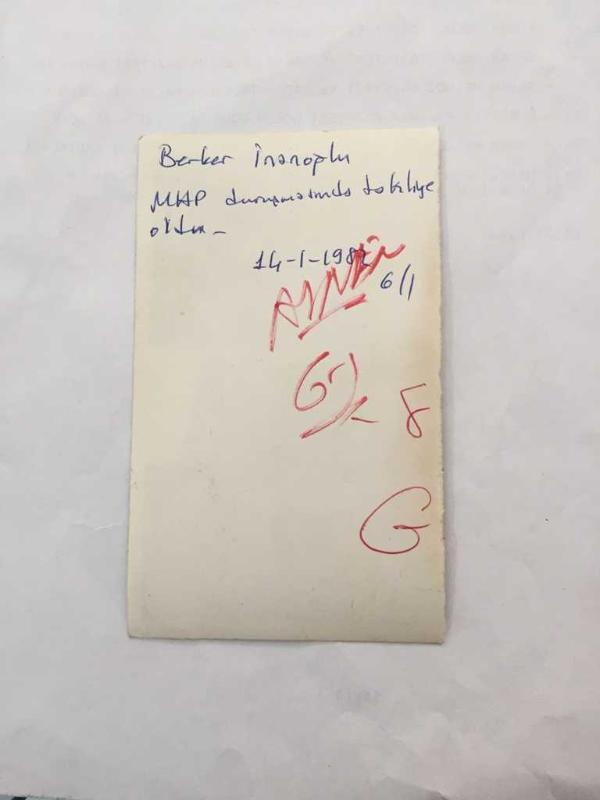 Berker İnanoğlu
MHP duruşmasında tahliye
oldu -
14-1-1982
6/1
AYNEN
6-)
8
G